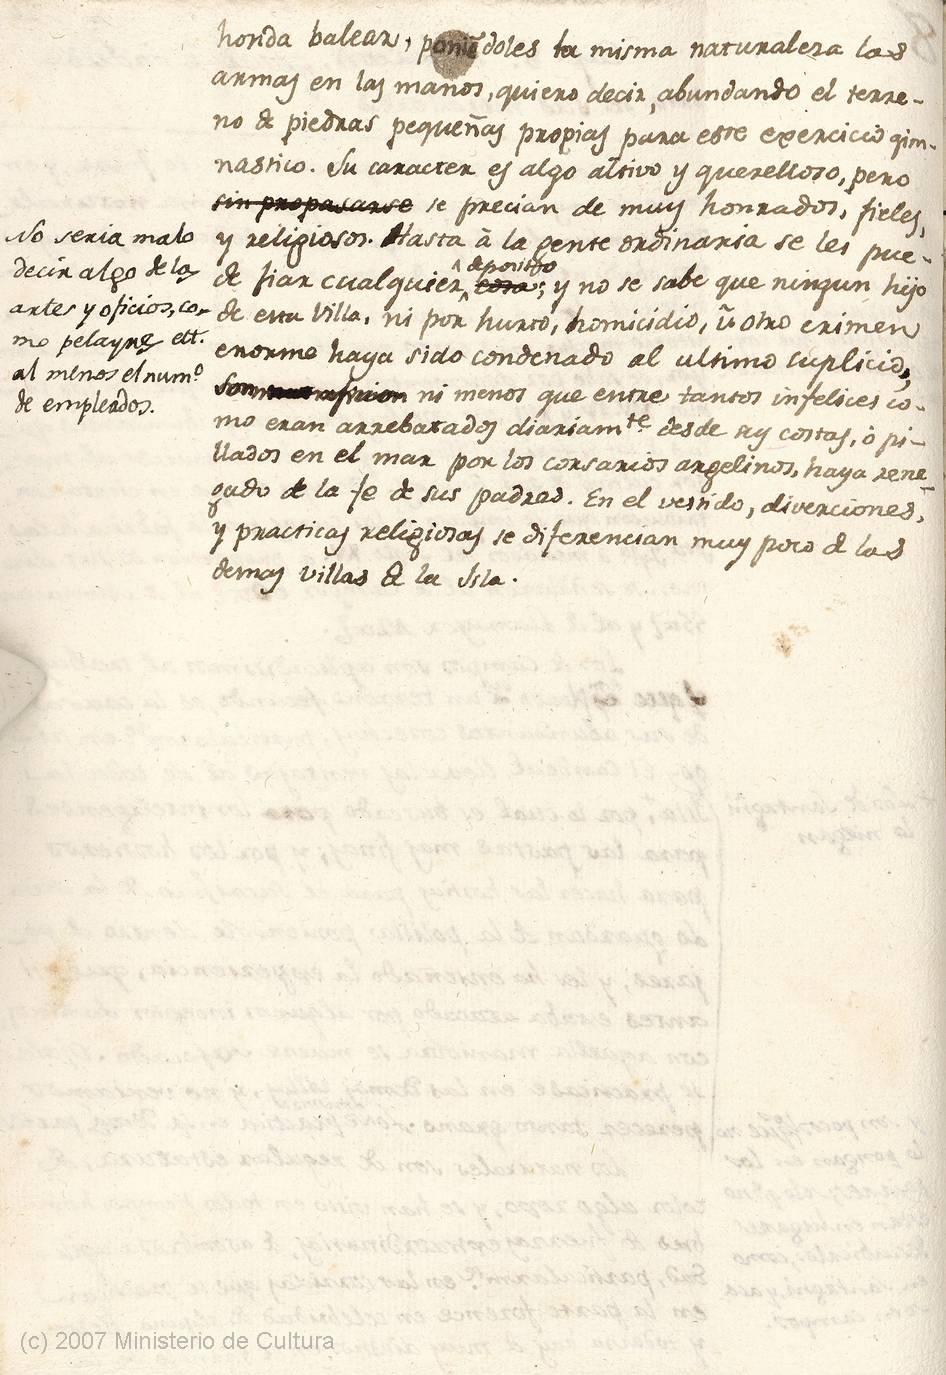 honda balear, poniēdoles la misma naturaleza las
armas en las manos, quiero decir, abundando el terre-
no de piedras pequeñas propias para este exercicio gim-
nastico. Su caracter es algo altivo y querelloso, pero
sin propasarse se precian de muy honrados, fieles,
y religiosos. Hasta à la gente ordinaria se les pue-
de fiar cualquier deposito cosa; y no se sabe que ningun hijo
de esta Villa, ni por hurto, homicidio, ù otro crimen
enorme haya sido condenado al ultimo suplicio,
ni menos que entre tantos infelices co-
mo eran arrebatados diariamte desde sus costas, ò pi-
llados en el mar por los corsarios argelinos, haya rene-
gado de la fe de sus padres. En el vestido, diverciones,
y practicas religiosas se diferencian muy poco de las
demas villas de la Isla.
No seria malo
decir algo de las
artes y oficios, co-
mo pelayres ett.
al menos el numo
de empleados.
(c) 2007 Ministerio de Cultura